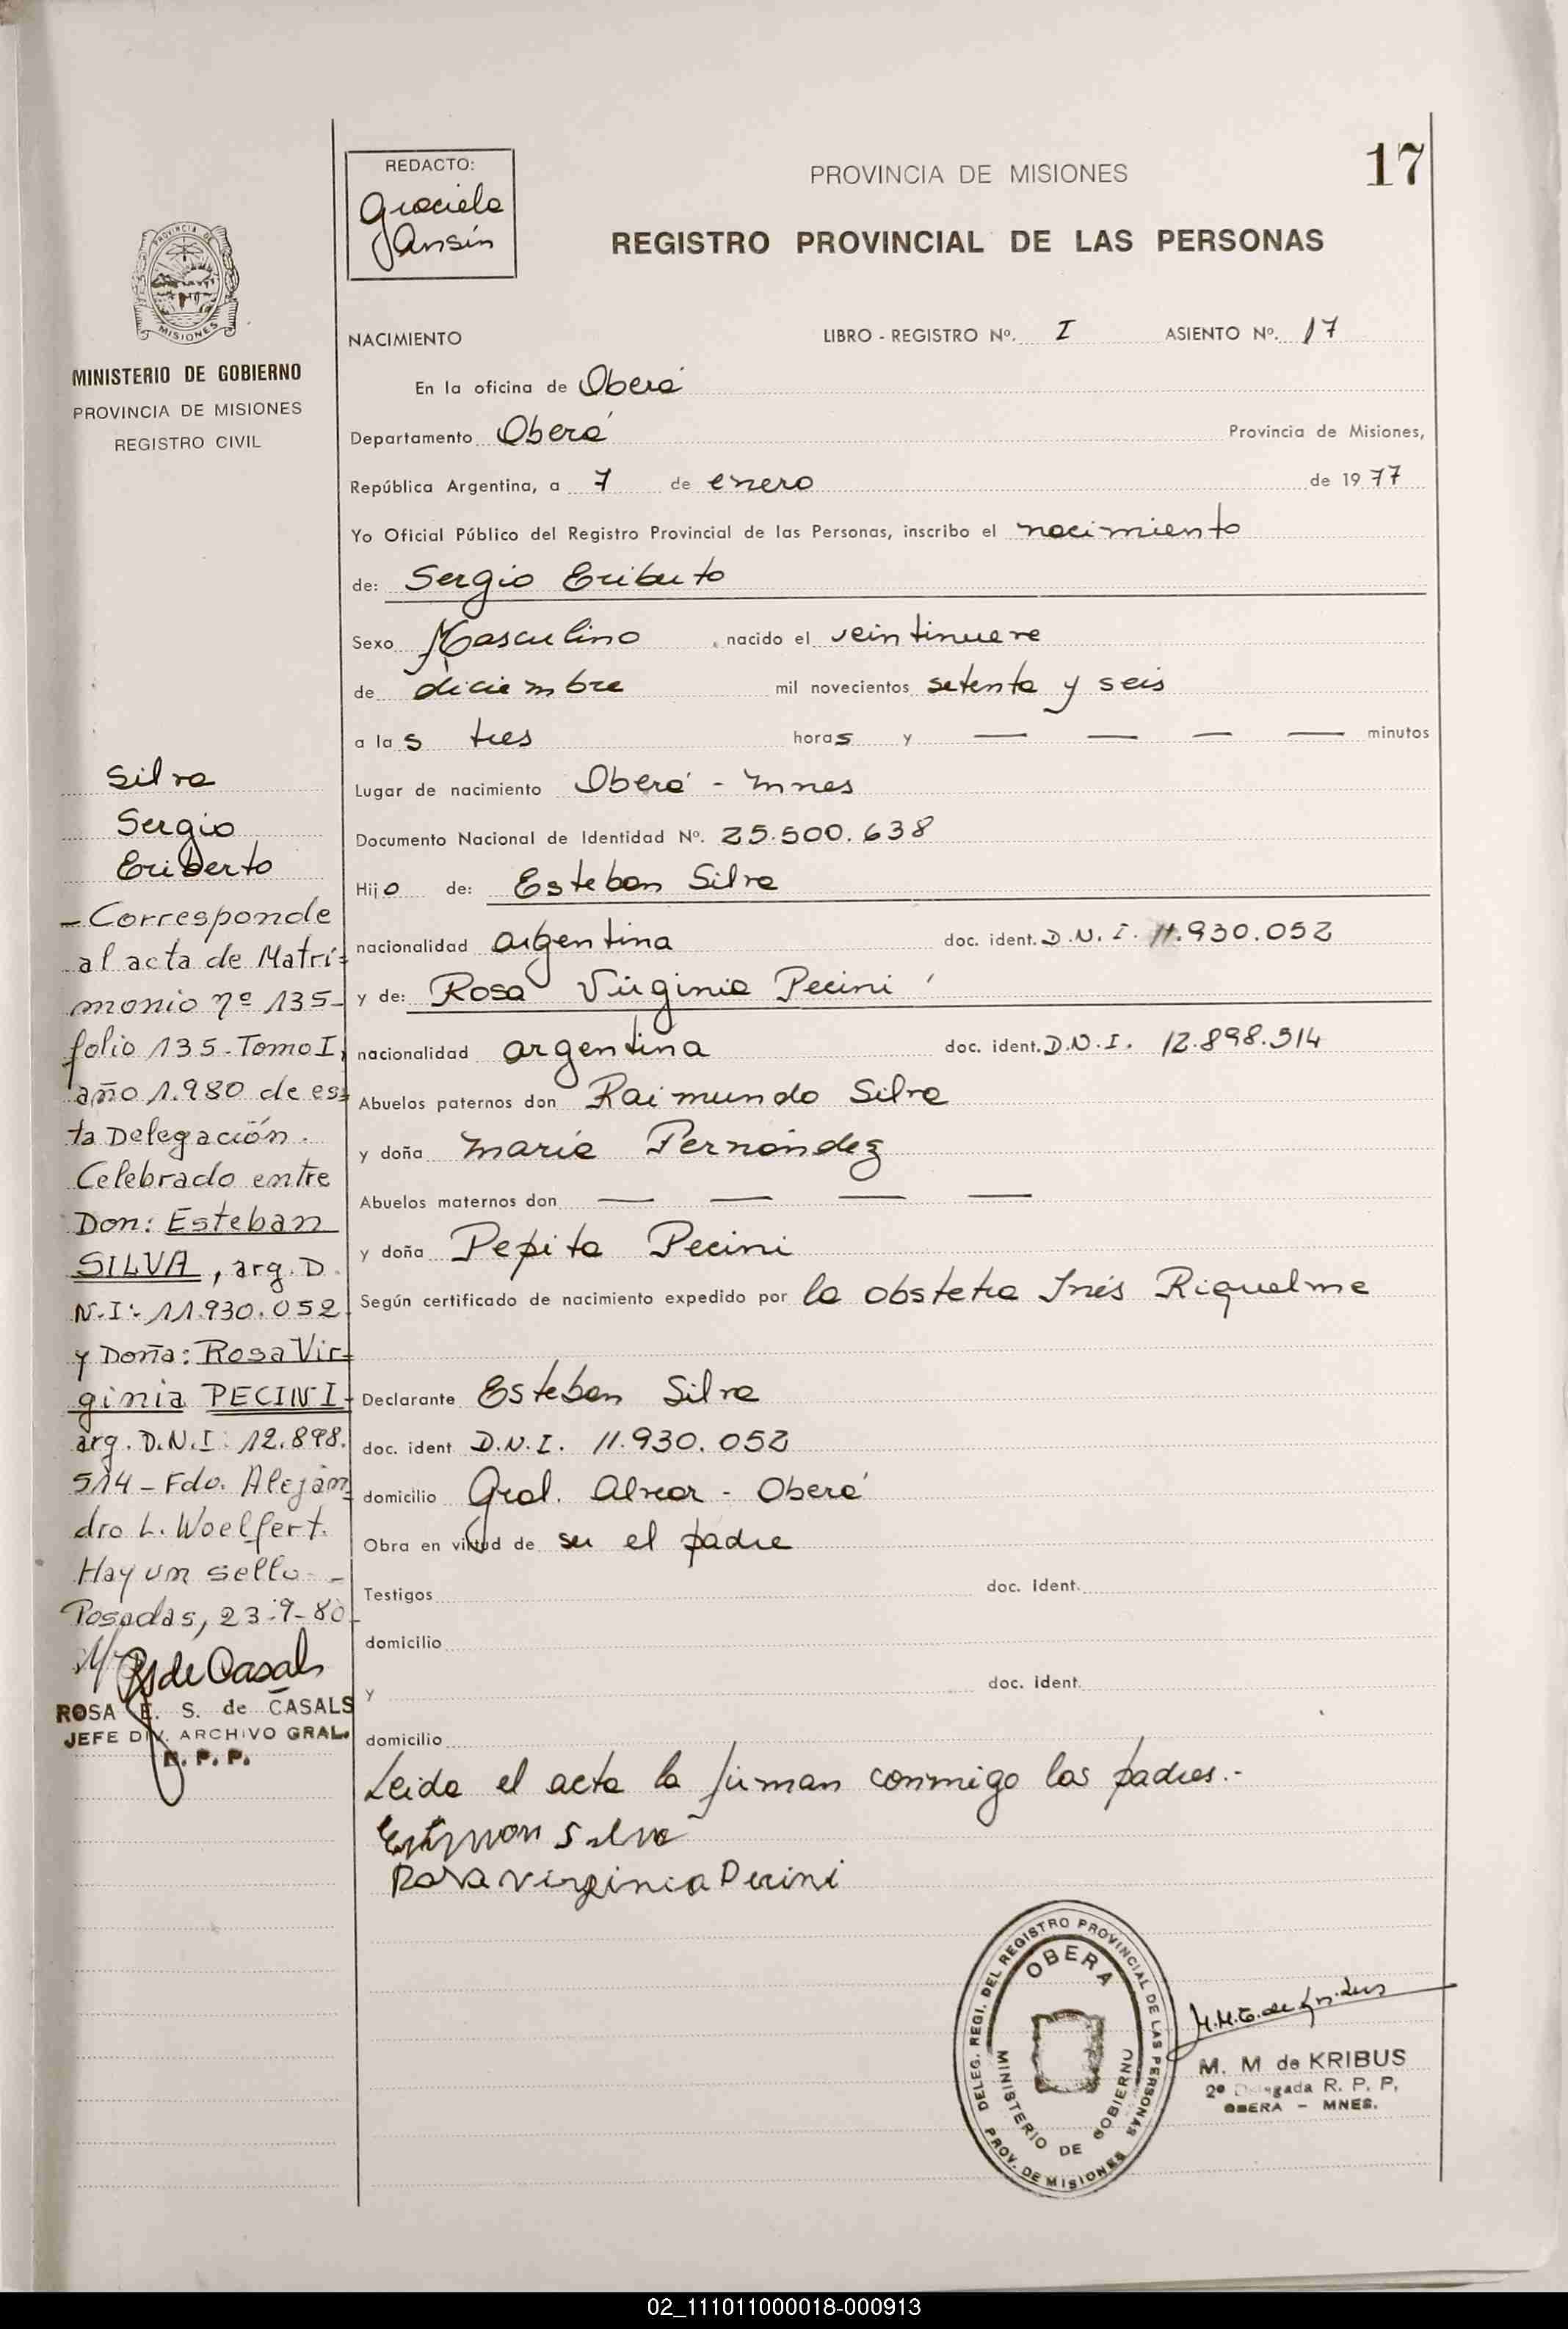 17
REDACTO:
Graciela
Ansín
PROVINCIA DE MISIONES
REGISTRO PROVINCIAL DE LAS PERSONAS
PROVINCIA DE
MISIONES
MINISTERIO DE GOBIERNO
PROVINCIA DE MISIONES
REGISTRO CIVIL
NACIMIENTO LIBRO - REGISTRO Nº. I ASIENTO Nº. 17
En la oficina de Oberá
Departamento Oberá Provincia de Misiones,
República Argentina, a 7 de enero de 1977
Yo Oficial Público del Registro Provincial de las Personas, inscribo el nacimiento
de: Sergio Eriberto
Sexo Masculino, nacido el veintinueve
de diciembre mil novecientos setenta y seis
a las tres horas y — — — — minutos
Lugar de nacimiento Oberá - Mnes
Documento Nacional de Identidad Nº. 25.500.638
Hijo de: Esteban Silva
nacionalidad argentina doc. ident. D.N.I. 11.930.052
y de: Rosa Virginia Pecini
nacionalidad argentina doc. ident. D.N.I. 12.898.514
Abuelos paternos don Raimundo Silva
y doña María Fernández
Abuelos maternos don — — — —
y doña Pepita Pecini
Según certificado de nacimiento expedido por la obstetra Inés Riquelme
Declarante Esteban Silva
doc. ident D.N.I. 11.930.052
domicilio Gral. Alvear - Oberá
Obra en virtud de ser el padre
Testigos doc. Ident.
domicilio
y doc. ident.
domicilio
Leida el acta la firman conmigo los padres.-
Silva
Rosa Virginia Pecini
Silva
Sergio
Eriberto
- Corresponde
al acta de Matri=
monio nº 135-
folio 135-Tomo I,
año 1.980 de es=
ta Delegación.
Celebrado entre
Don: Esteban
SILVA, arg. D.
N.I: 11.930.052
y Doña: Rosa Vir=
ginia PECINI-
arg. D.N.I: 12.898.
514 - Fdo. Alejan=
dro L. Woelfert.
Hay un sello -
Posadas, 23-9-80-
ROSA E. S. de CASALS
JEFE DIV. ARCHIVO GRAL.
R. P. P.
DELEG. REGI. DEL REGISTRO PROVINCIAL DE LAS PERSONAS
OBERA
MINISTERIO DE GOBIERNO
PROV. DE MISIONES
M. M de KRIBUS
2º Delegada R. P. P.
OBERA - MNES.
02_111011000018-000913